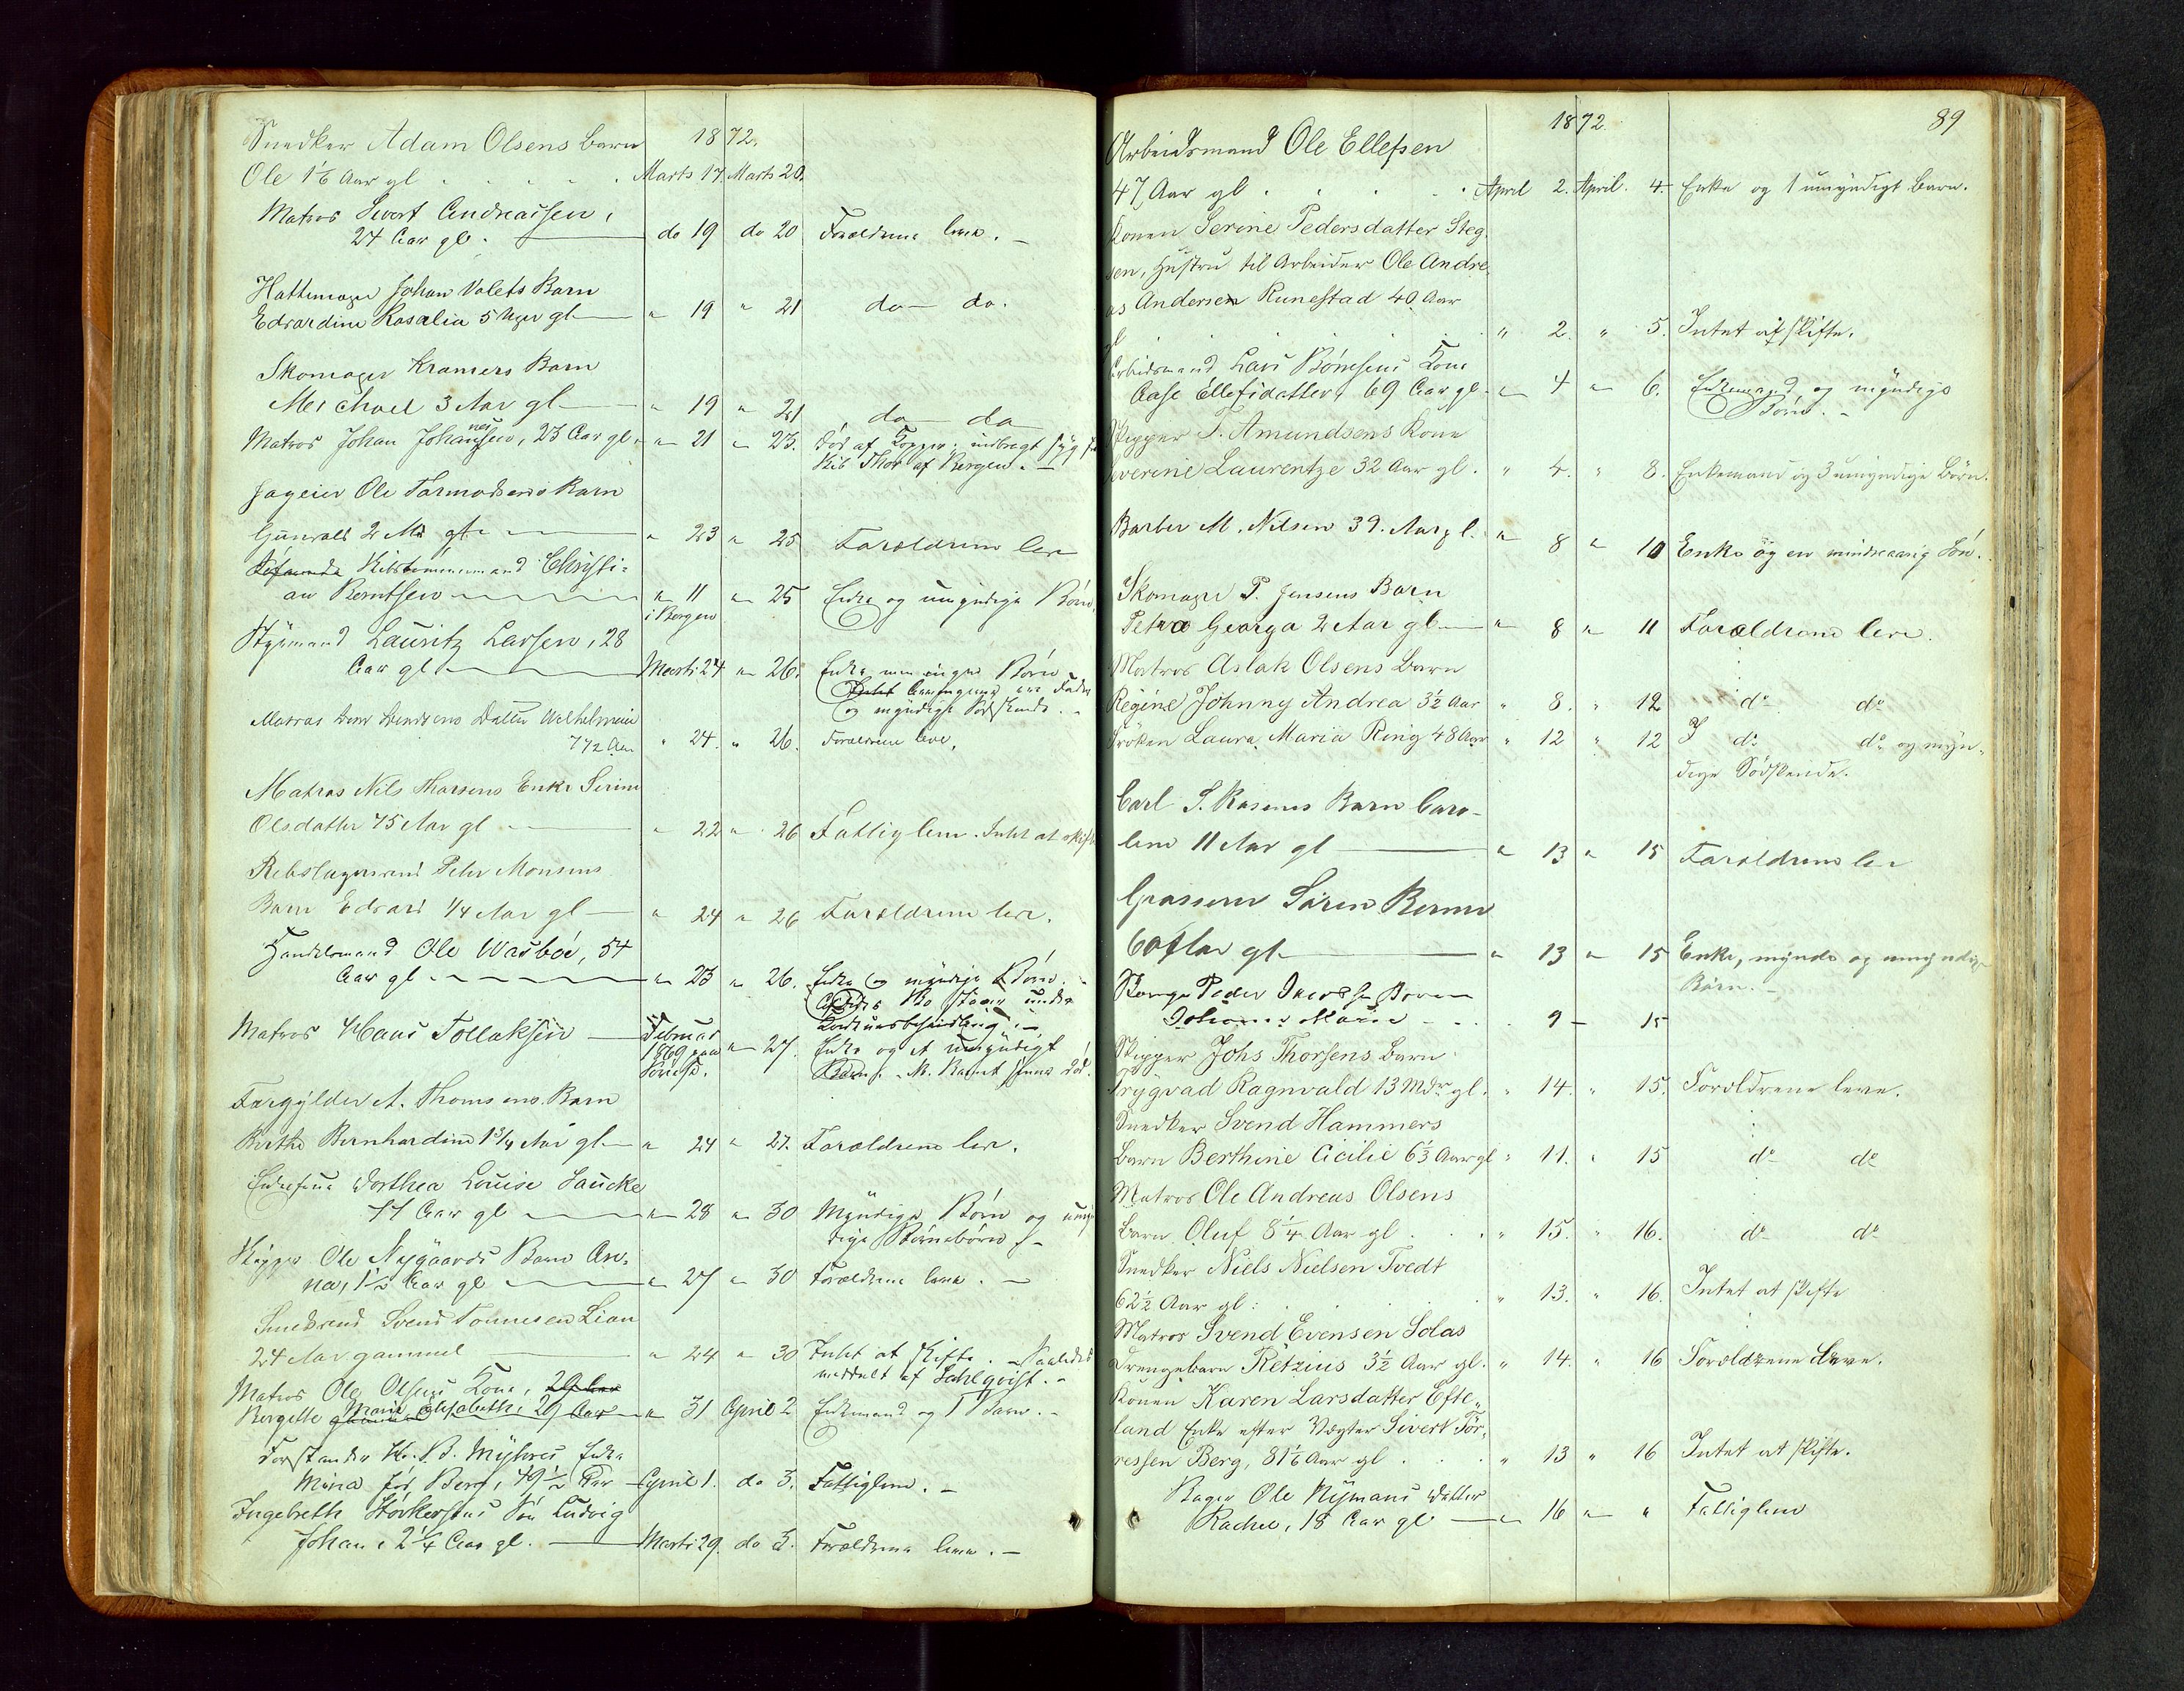 1872.
Snedker Adam Olsens Barn
Ole 1⅙ Aar gl . . . . . Marts 17. Marts 20.
Matros Sivert Andreassen,
24 Aar gl. do 19 do 20 Forældrene leve. -
Hattemager Johan Valets Barn
Edvardine Rosalia 5 Uger gl — " 19 " 21 do- do.
Skomager Kramers Barn
Meichael 3 Aar gl — " 19 " 21 do do
Matros Johan Johannessen, 23 Aar gl. " 21 " 23. Død af Kopper; indbragt syg fra
Skib Thor af Bergen. -
Ole Tormodsens Barn
Gunvald 2 Md gl. " 23 " 25 Forældrene leve
Christi-
an Berntsen " 11 " 25 Enke og umyndige Børn.
i Bergen
Styrmand Lauritz Larsen, 28
Aar gl Marts 24 " 26. Enke men ingen Børn
Fader
og myndige Sødskende. -
Matros Datter Wilhelmine
7 1/2 Aar " 24. " 26. Forældrene leve.
Matros Nils Thorsens Enke Serine
Olsdatter 75 Aar gl — " 22 " 26 Fattiglem. Intet at skifte
Rebslagersvend Peter Monsens
Barn Edvard 1/4 Aar gl — " 24 " 26 Forældrene leve.
Handelsmand Ole Wasbøe, 54
Aar gl. " 23 " 26. Enke og myndige Børn.
Bo staaer under
Konkursbehandling. -
Matros Hans Tollaksen — Februar
1869 paa " 27. Enke og et umyndigt
Barn. - NB. Barnet siden død.
Forgylder A. Thomsens Barn
Berthe Bernhardine 1 3/4 Aar gl — " 24 " 27. Forældrene leve.
Enkefrue Dorthea Louise Saucke
77 Aar gl " 28 " 30 Myndige Børn og umyn-
dige Børnebørn. -
Skipper Ole Nygaards Barn An-
na, 1 1/2 Aar gl " 27 " 30 Forældrene leve. -
Smedsvend Svend Tønnesen Lian
24 Aar gammel — " 24 " 30 Intet at skifte. - Saaledes
meddelt af Sahlqvist. -
Matros Ole Olsens Kone, 29 Aar
Bergitte Marie Elisabeth, 29 Aar " 31 April 2 Enkemand og 1 Barn. -
Forstander H. B. Myhres Enke
Mina fød Berg, 49 1/2 Aar April 1. do 3. Fattiglem. -
Ingebreth Størkersens Søn Ludvig
Johan, 2 1/4 Aar gl. — Marts 29. do 3. Forældrene leve. -
1872. 89
Arbeidsmand Ole Ellefsen
47 Aar gl . . . . April 2. April. 4. Enke og 1 umyndigt Barn.
Konen Serine Pedersdatter Steg-
sen, Hustru til Arbeider Ole Andre-
as Andersen Runestad 40 Aar
gl . . . . . " 2. " 5. Intet at skifte.
Arbeidsmand Lars Kone
Aase Ellefsdatter, 69 Aar gl. " 4 " 6. Enkemand og myndige
Børn. -
Skipper T. Amundsens Kone
Severine Laurentze 32 Aar gl. " 4. " 8. Enkemand og 3 umyndige Børn.
Barber M. Nilsen 39. Aar gl. " 8 " 10 Enke og en mindreaarig Søn.
Skomager P. Jensens Barn
Petra Georga 2 Aar gl — " 8 " 11 Forældrene leve.
Matros Aslak Olsens Barn
Regine Johnny Andrea 3½ Aar " 8. " 12 do do
Frøken Laura Maria Ring 48 Aar " 12 " 12 do do og myn-
dige Sødskende.
Carl S. Rasmus Barn Caro-
line 11 Aar gl — " 13 " 15 Forældrene leve
Grosserer Søren Berner
60 Aar gl — " 13 " 15 Enke, mynde og umyndige
Børn. -
Peder Barn
Johanne Marie - . . . 9 - 15
Skipper Johs Thorsens Barn
Trygvad Ragnvald 13 Mdr gl. " 14. " 15. Forældrene leve.
Snedker Svend Hammers
Barn Berthine Cicilie 6⅔ Aar gl " 11. " 15 do do
Matros Ole Andreas Olsens
Barn Oluf 8¼ Aar gl . . . " 15. " 16. do do
Snedker Niels Nielsen Tvedt
62½ Aar gl: . . . . " 13. " 16. Intet at skifte
Matros Svend Evensen Solas
Drengebarn Retzius 3½ Aar gl. " 14. " 16 Forældrene leve.
Konen Karen Larsdatter Efte-
land Enke efter Vægter Sivert Tør-
resen Berg, 81⅙ Aar gl . . . " 13 " 16 Intet at skifte.
Bager Ole Nymans Datter
Rachel, 18 Aar gl — " 16 " " Fattiglem